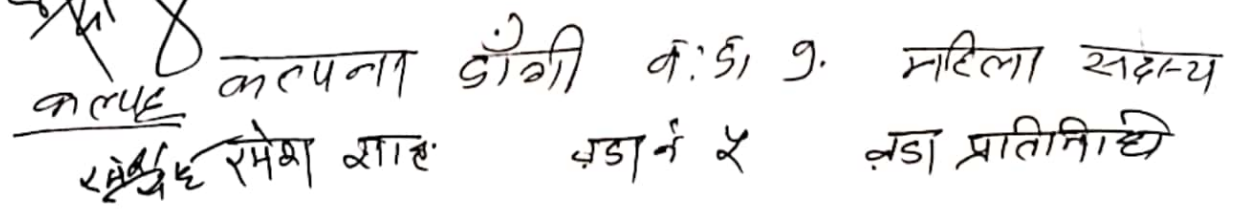 कल्पना डाँगी व.डा १. महिला सदस्य
रमेश शाह वडा नं ५ वडा प्रतिनिधी